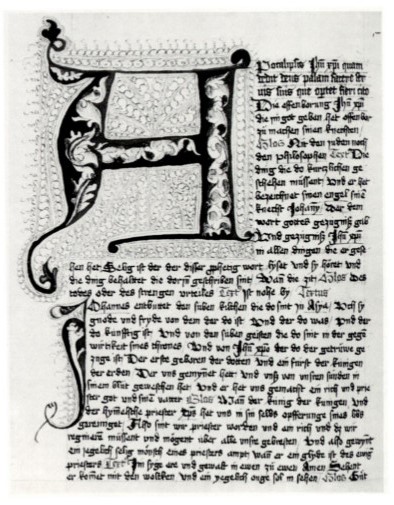 Apocalipsis Jhū xp̄i quam
dedit deus palam facere ser
uis suis que oportet fieri cito
Die offenbarung Jhū xp̄i
die ym got geben het offenbar
zü machen sinen knechten
Glos Nit den juden noch
den philosophen Text Die
ding die do kurtzlichen ge
schehen müssent vnd er het
bezeichnet sinen engel sinē
knecht Johañ Der den
wort gottes gezugniß gab
Vnd gezugniß Jhū xp̄i
in allen dingen die er gese
hen het Selig ist der der diser ꝓphecig wort lyset vnd sy höret vnd
die ding behaltet die dorjn geschriben sint Wañ die zit Glos des
todes oder des strengen vrteiles Text ist nohe by Textus
Johannes enbütet den suben kilchen die do sint in Asya Vch sy
gnode vnd fryde von dem der do ist Vnd der do was Vnd der
do kunfftig ist Vnd von den suben geisten die do sint in der gege
wirtikeit sines thrones Vnd von Jhū xp̄o der do der getruwe ge
zuge ist Der erste geboren der dotten vnd ein furst der kunigen
der erden Der vns gemynet het vnd vnß von vnsern sunden in
sinem blüt geweschen het Vnd er het vns gemacht ein rich vnd prie
ster got vnd sinē vatter Glos Wan der kunig der kunigen vnd
der hymelsche priester xp̄s het vns in im selbs opfferunge sines blüts
gereiniget Also sint wir priester worden vnd ein rich vnd dz wir
regnieren müssent vnd mögent über alle vnsre gebresten Vnd also gewynt
ein jegelich selig mönsch eines priesters ampt wan er ein glyde ist des ewigē
priesters Text Im syge ere vnd gewalt in ewen zü ewen Amen Sehent
er komet mit den wolcken vnd ein yegelich ouge sol in sehen Glos Mit